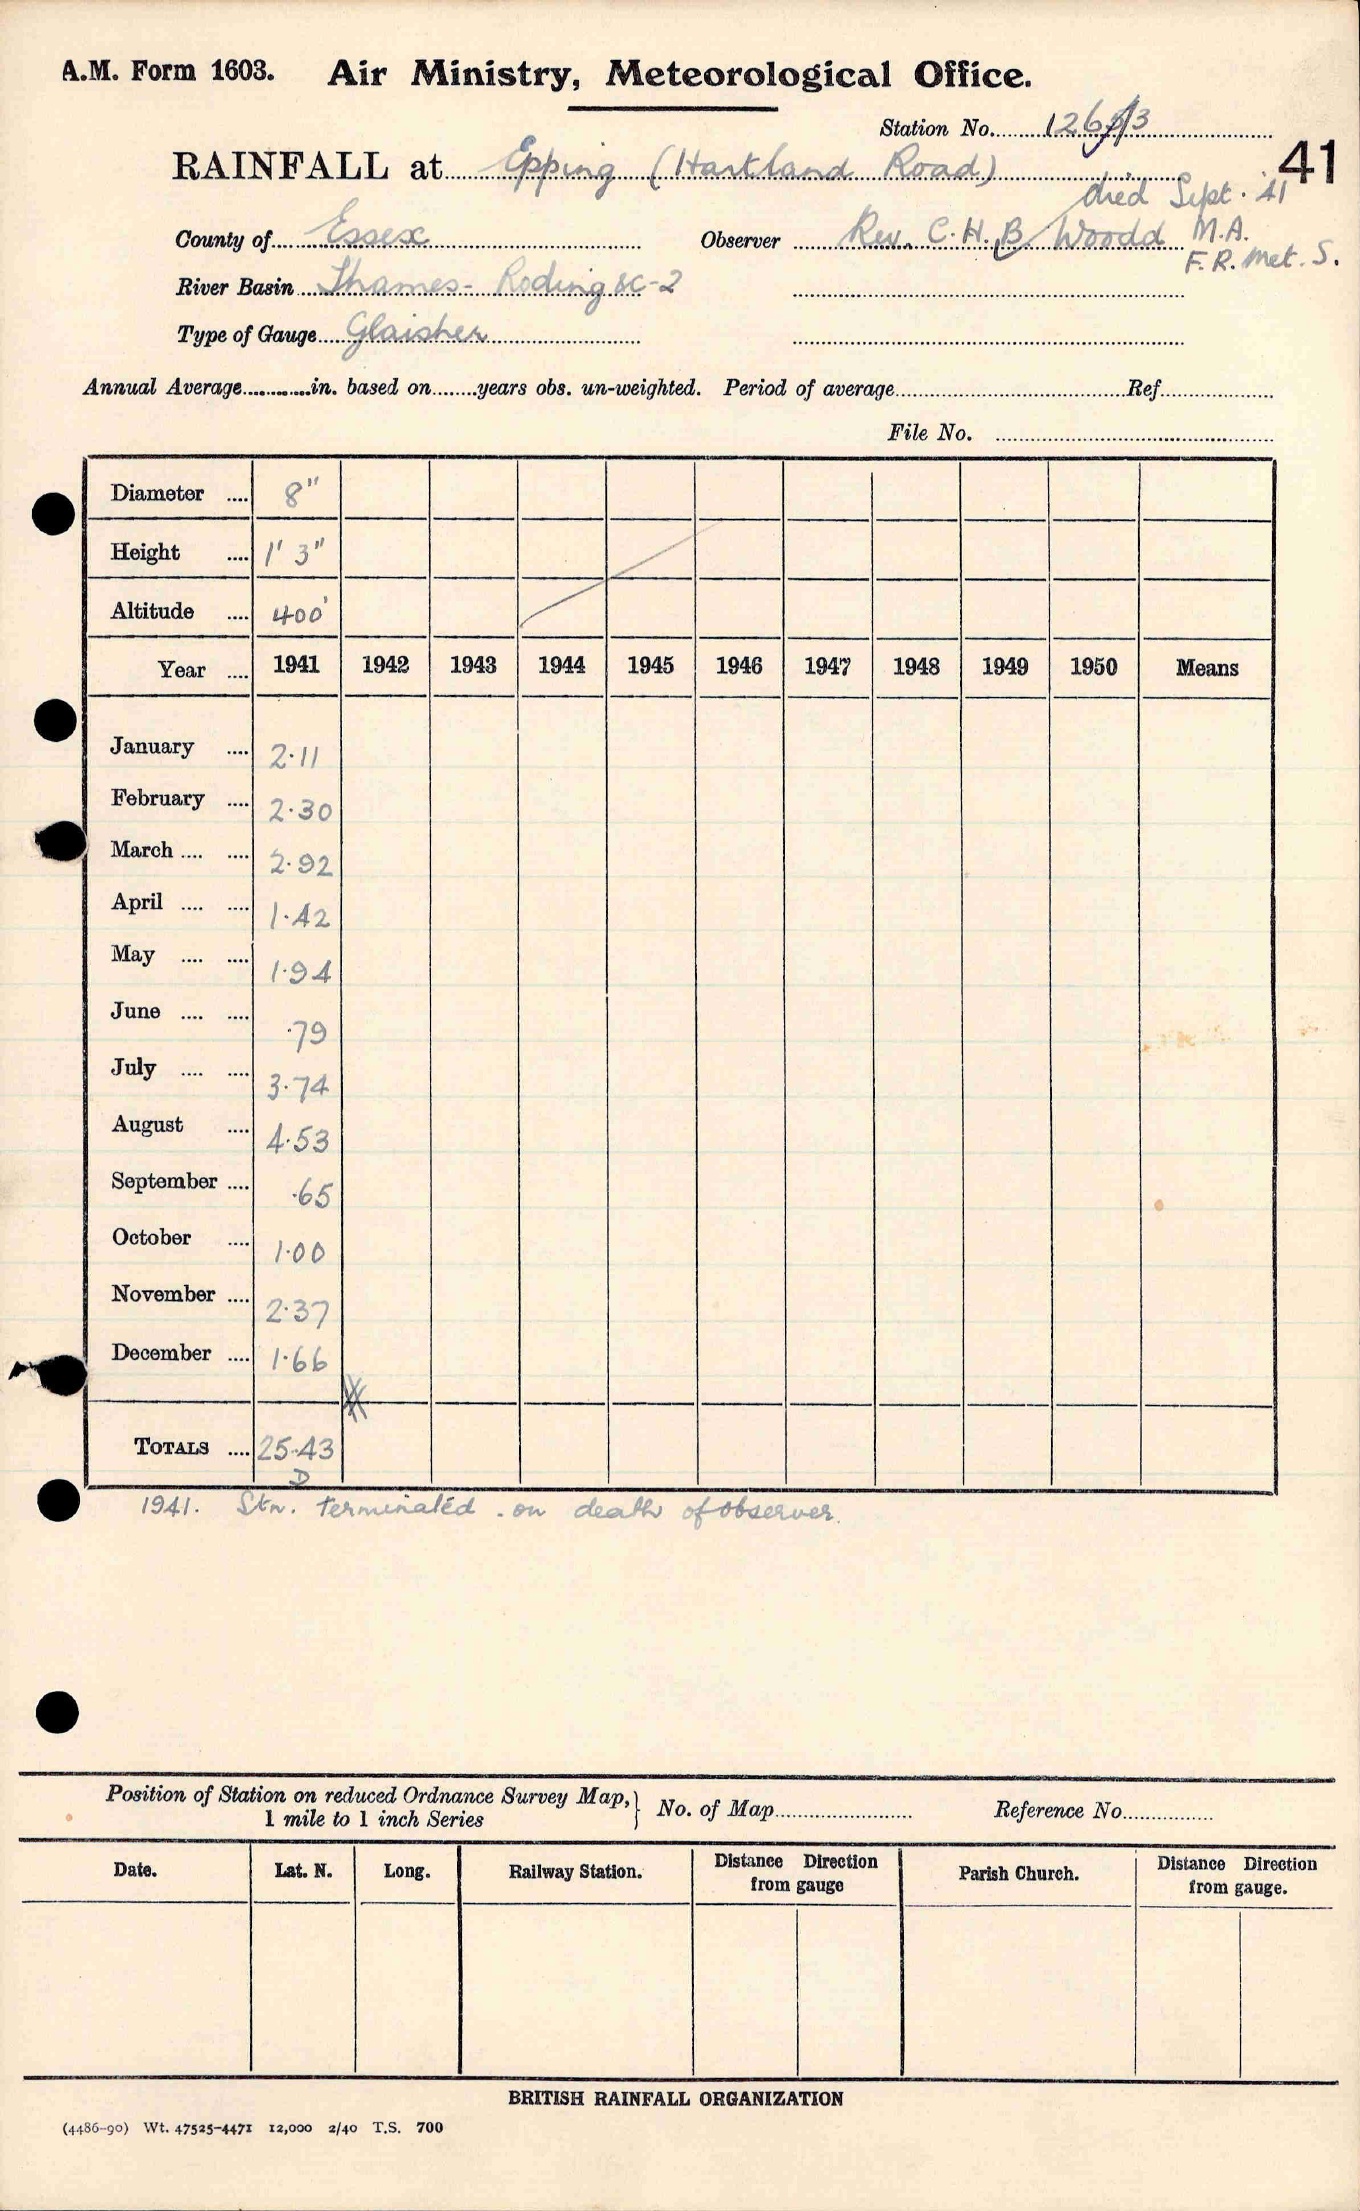 A.M. Form 1603. Air Ministry, Meteorological Office.
Station No. 126
41
RAINFALL at Epping (Hartland Road)
died Sept. '41
County of Essex Observer Rev. C.H.B. Woodd M.A.
F.R. Met. S.
River Basin Thames - Roding 8C-2
Type of Gauge Glaisher
Annual Average in. based on years obs. un-weighted. Period of average Ref.
File No.
Diameter 8"
Height 1' 3"
Altitude 400'
Year 1941 1942 1943 1944 1945 1946 1947 1948 1949 1950 Means
January 2.11
February 2.30
March 2.92
April 1.42
May 1.94
June .79
July 3.74
August 4.53
September .65
October 1.00
November 2.37
December 1.66
TOTALS 25.43
D
1941. Stn. terminated on death of observer.
Position of Station on reduced Ordnance Survey Map, } No. of Map Reference No.
1 mile to 1 inch Series
Date. Lat. N. Long. Railway Station. Distance Direction from gauge Parish Church. Distance Direction from gauge.
BRITISH RAINFALL ORGANIZATION
(4486-90) Wt. 47525-4471 12,000 2/40 T.S. 700